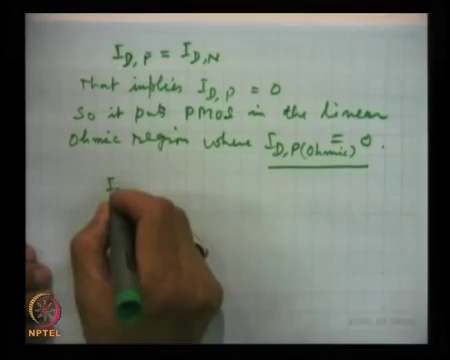 I_D,P = I_D,N
That implies I_D,P = 0
So it puts PMOS in the linear
Ohmic region where I_D,P(Ohmic) = 0.
I
NPTEL